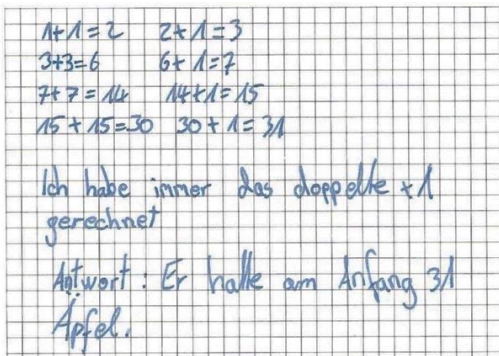 1+1=2 2+1=3
3+3=6 6+1=7
7+7=14 14+1=15
15+15=30 30+1=31
Ich habe immer das doppelte +1
gerechnet
Antwort: Er hatte am Anfang 31
Äpfel.